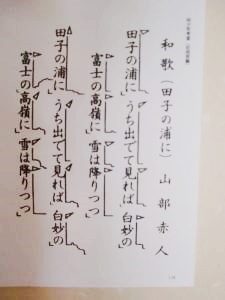 和歌（田子の浦に）　山部赤人
田子の浦に うち出でて見れば 白妙の
富士の高嶺に 雪は降りつつ
田子の浦に うち出でて見れば 白妙の
富士の高嶺に 雪は降りつつ